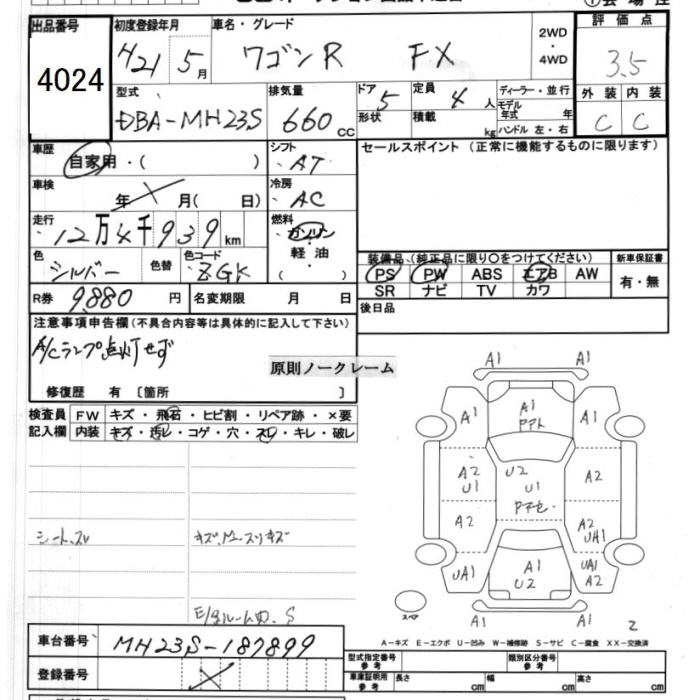 出品番号
4024
初度登録年月
H21 5月
車名・グレード
ワゴンR FX
2WD
・
4WD
評価点
3.5
外装 内装
C C
型式
DBA-MH23S
排気量
660 cc
ドア 5
形状
定員 4 人
積載 kg
ディーラー・並行
モデル
年式 年
ハンドル 左・右
車歴
自家用・( )
シフト
AT
セールスポイント (正常に機能するものに限ります)
車検
年 月( 日)
冷房
AC
走行
12万4千939km
燃料
ガソリン
・
軽油
・
( )
色
シルバー
色替
色コード
Z6K
装備品 (純正品に限り○をつけてください)
新車保証書
PS PW ABS エアB AW
有・無
SR ナビ TV カワ
R券 9,880 円
名変期限 月 日
後日品
注意事項申告欄(不具合内容等は具体的に記入して下さい)
A/Cランプ点灯せず
原則ノークレーム
修復歴 有 〔箇所 〕
検査員
FW キズ・飛石・ヒビ割・リペア跡・×要
記入欄
内装 キズ・汚レ・コゲ・穴・スレ・キレ・破レ
シートスレ
E/gルーム内、S
A1 A1
A1 A1 A1
A2 U2 A2
U1 U1
A2 A2
UH1
UA1 A1 UA1
U2 A2
A1 A1
スペア
2
A-キズ E-エクボ U-凹み W-補修跡 S-サビ C-腐食 XX-交換済
車台番号
MH23S-187899
登録番号
型式指定番号
参考
類別区分番号
参考
車庫証明用
参考
長さ cm 幅 cm 高さ cm